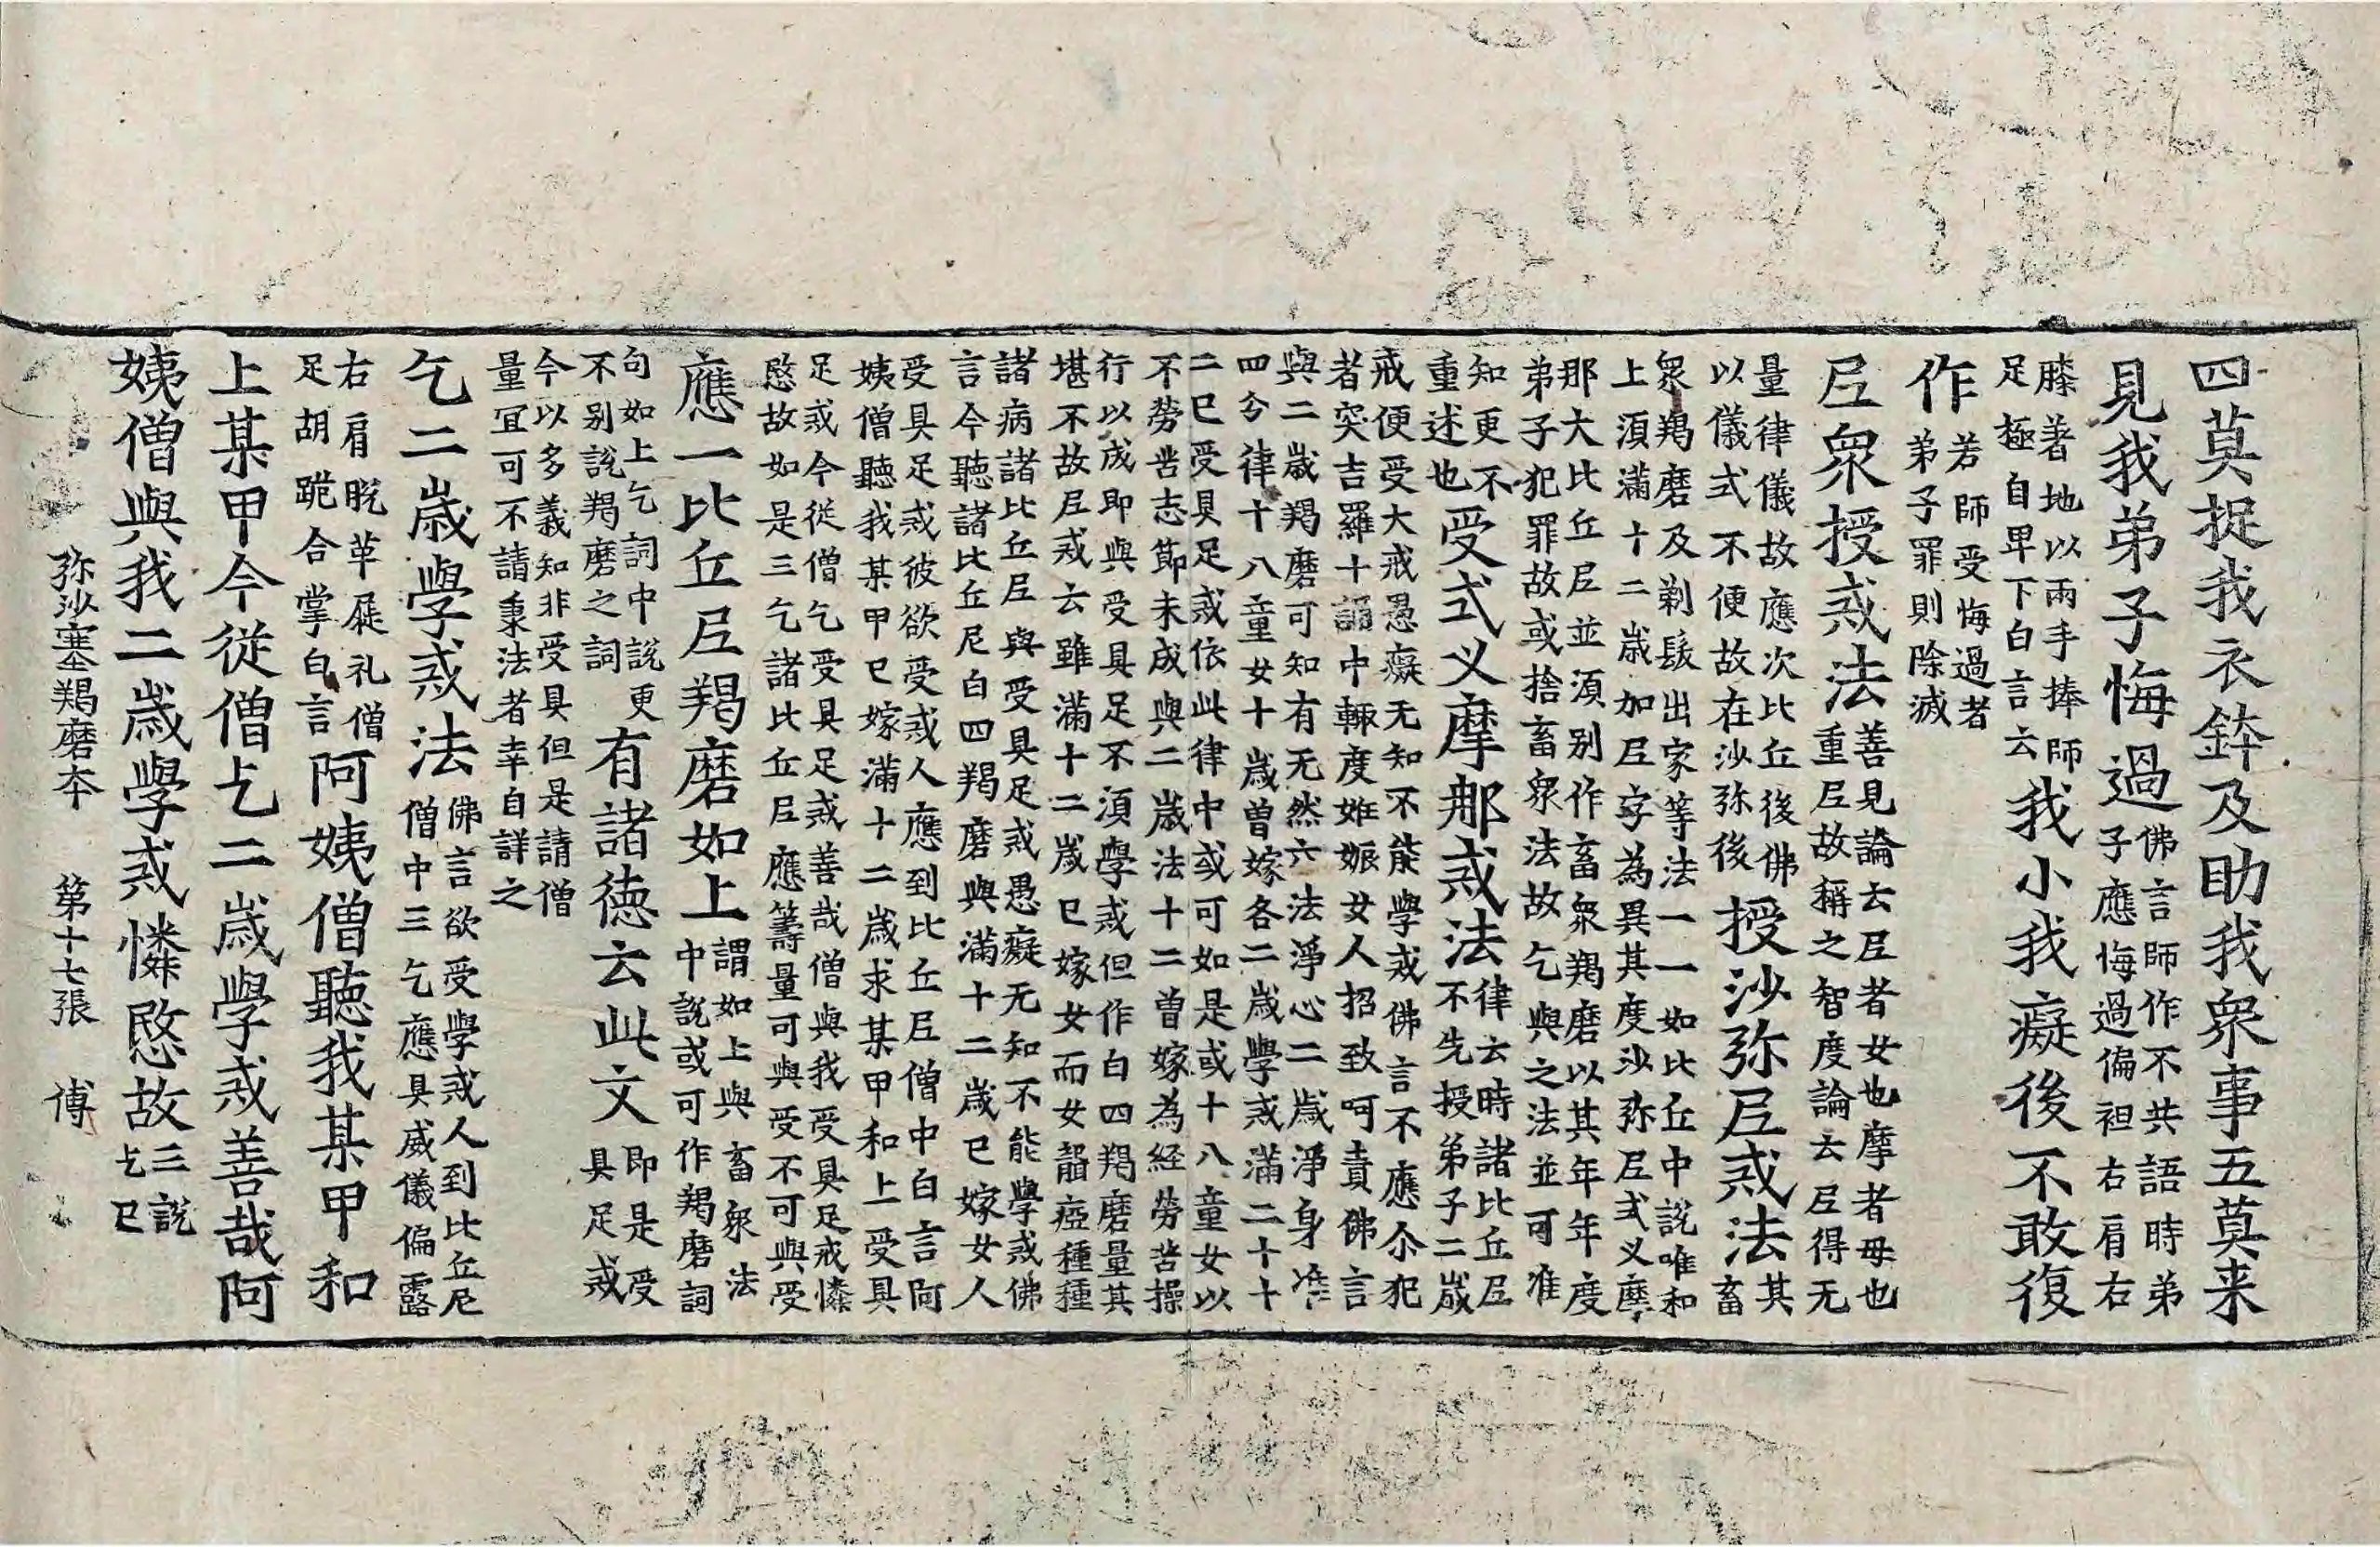 四莫捉我衣鉢及助我衆事五莫来
見我弟子悔過
佛言師作不共語時弟
子應悔過偏袒右肩右
膝著地以兩手捧師
足極自卑下白言云
我小我癡後不敢復
作
若師受悔過者
弟子罪則除滅
尼衆授戒法
善見論云尼者女也摩者母也
重尼故稱之智度論云尼得无
量律儀故應次比丘後佛
以儀式不便故在沙弥後
授沙弥尼戒法
其
畜
衆羯磨及剃髮出家等法一一如比丘中說唯和
上須滿十二歲加尼字為異其度沙弥尼式叉摩
那大比丘尼並須別作畜衆羯磨以其年年度
弟子犯罪故或捨畜衆法故乞與之法並可准
知更不
重述也
受式叉摩那戒法
律云時諸比丘尼
不先授弟子二歲
戒便受大戒愚癡无知不能學戒佛言不應尒犯
者突吉羅十誦中輙度妊娠女人招致呵責佛言
與二歲羯磨可知有无然六法淨心二歲淨身准
四分律十八童女十歲曾嫁各二歲學戒滿二十十
二已受具足戒依此律中或可如是或十八童女以
不勞苦志節未成與二歲法十二曾嫁為経勞苦操
行以成即與受具足不須學戒但作白四羯磨量其
堪不故尼戒云雖滿十二歲已嫁女而女聾瘂種種
諸病諸比丘尼與受具足戒愚癡无知不能學戒佛
言今聽諸比丘尼白四羯磨與滿十二歲已嫁女人
受具足戒彼欲受戒人應到比丘尼僧中白言阿
姨僧聽我某甲已嫁滿十二歲求某甲和上受具
足戒今従僧乞受具足戒善哉僧與我受具足戒憐
愍故如是三乞諸比丘尼應籌量可與受不可與受
應一比丘尼羯磨如上
謂如上與畜衆法
中說或可作羯磨詞
句如上乞詞中說更
不別說羯磨之詞
有諸徳云此文
即是受
具足戒
今以多義知非受具但是請僧
量宜可不請秉法者幸自詳之
乞二歲學戒法
佛言欲受學戒人到比丘尼
僧中三乞應具威儀偏露
右肩脫革屣礼僧
足胡跪合掌白言
阿姨僧聽我某甲和
上某甲今従僧乞二歲學戒善哉阿
姨僧與我二歲學戒憐愍故
三說
乞已
弥沙塞羯磨本 第十七張 傅